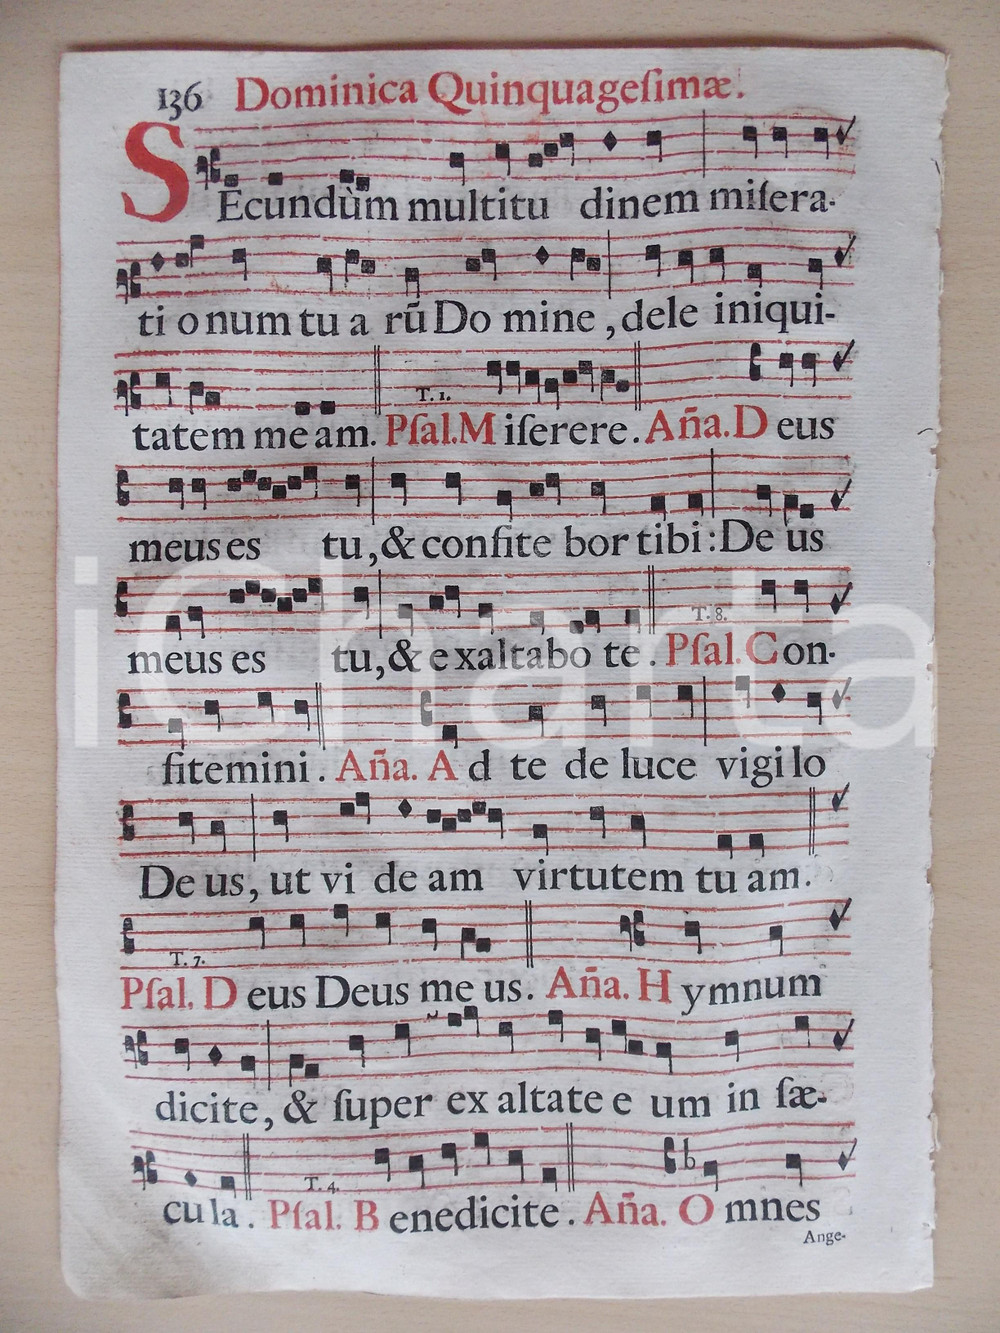 136 Dominica Quinquageſimæ.
SEcundùm multitu dinem miſera-
ti onum tu a rũ Do mine , dele iniqui-
T. 1.
tatem me am. Pſal. M iſerere. Aña. D eus
meus es tu, & confite bor tibi : De us
T. 8.
meus es tu, & exaltabo te. Pſal. Con-
fitemini. Aña. A d te de luce vigi lo
De us, ut vi de am virtutem tu am.
T. 7.
Pſal. D eus Deus me us. Aña. H ymnum
dicite, & ſuper ex altate e um in ſæ-
T. 4.
cula. Pſal. B enedicite. Aña. O mnes
Ange-
iCharta